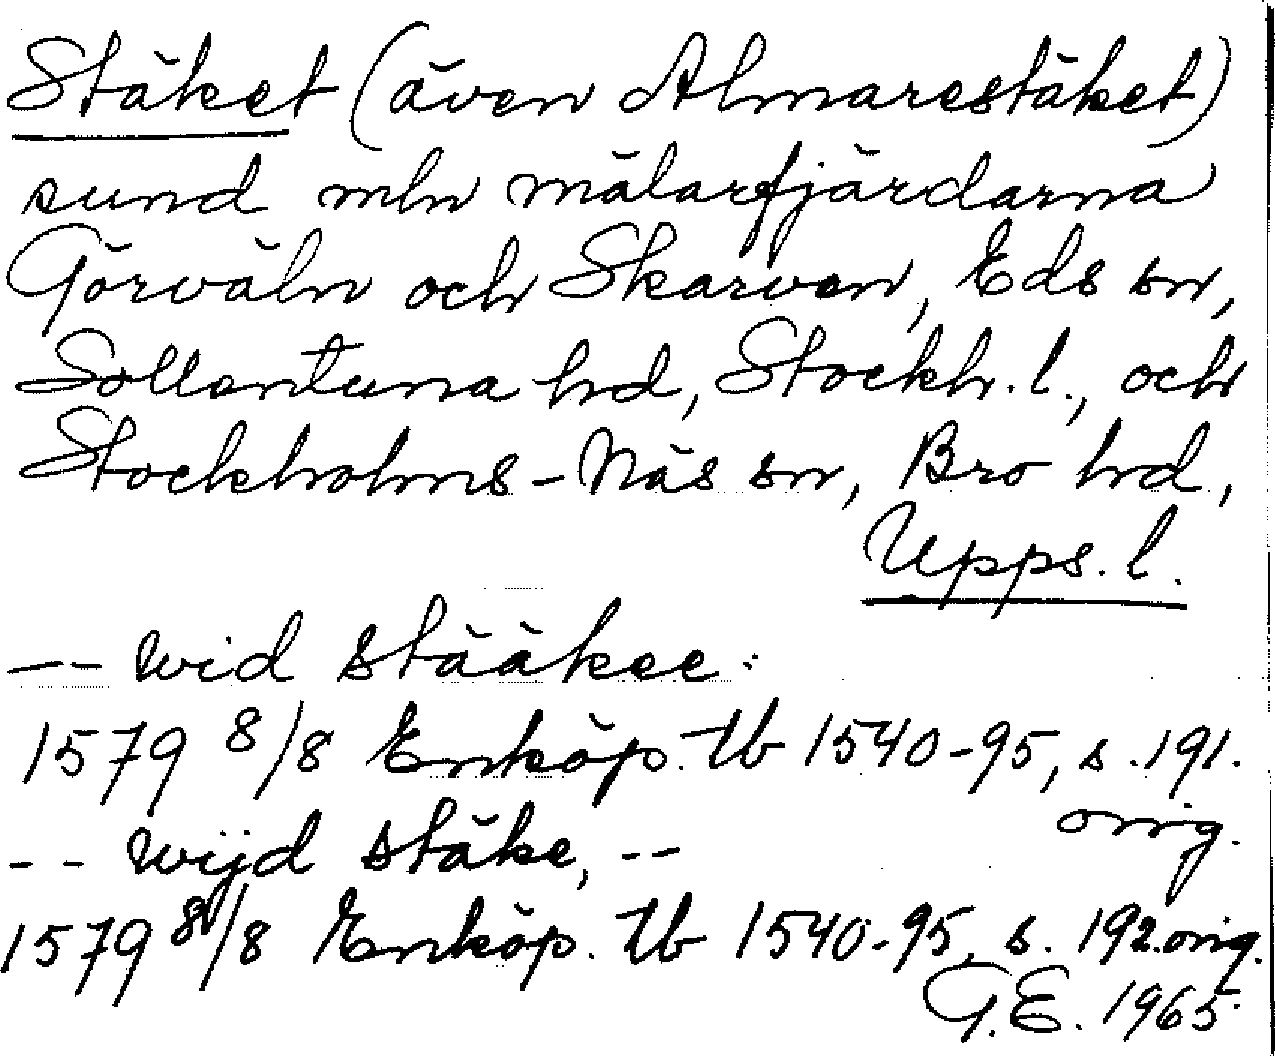 Stäket (även Almarestäket)
sund mln mälarfjärdarna
Görväln och Skarven, Eds sn,
Sollentuna hd, Stockh. l., och
Stockholms-Näs sn, Bro hd,
Upps. l.
-- wid stääkee:
1579 8/8 Enköp. tb 1540-95, s. 191.
orig.
-- wijd stäke, --
1579 8/8 Enköp. tb 1540-95, s. 192. orig.
G.E. 1965.